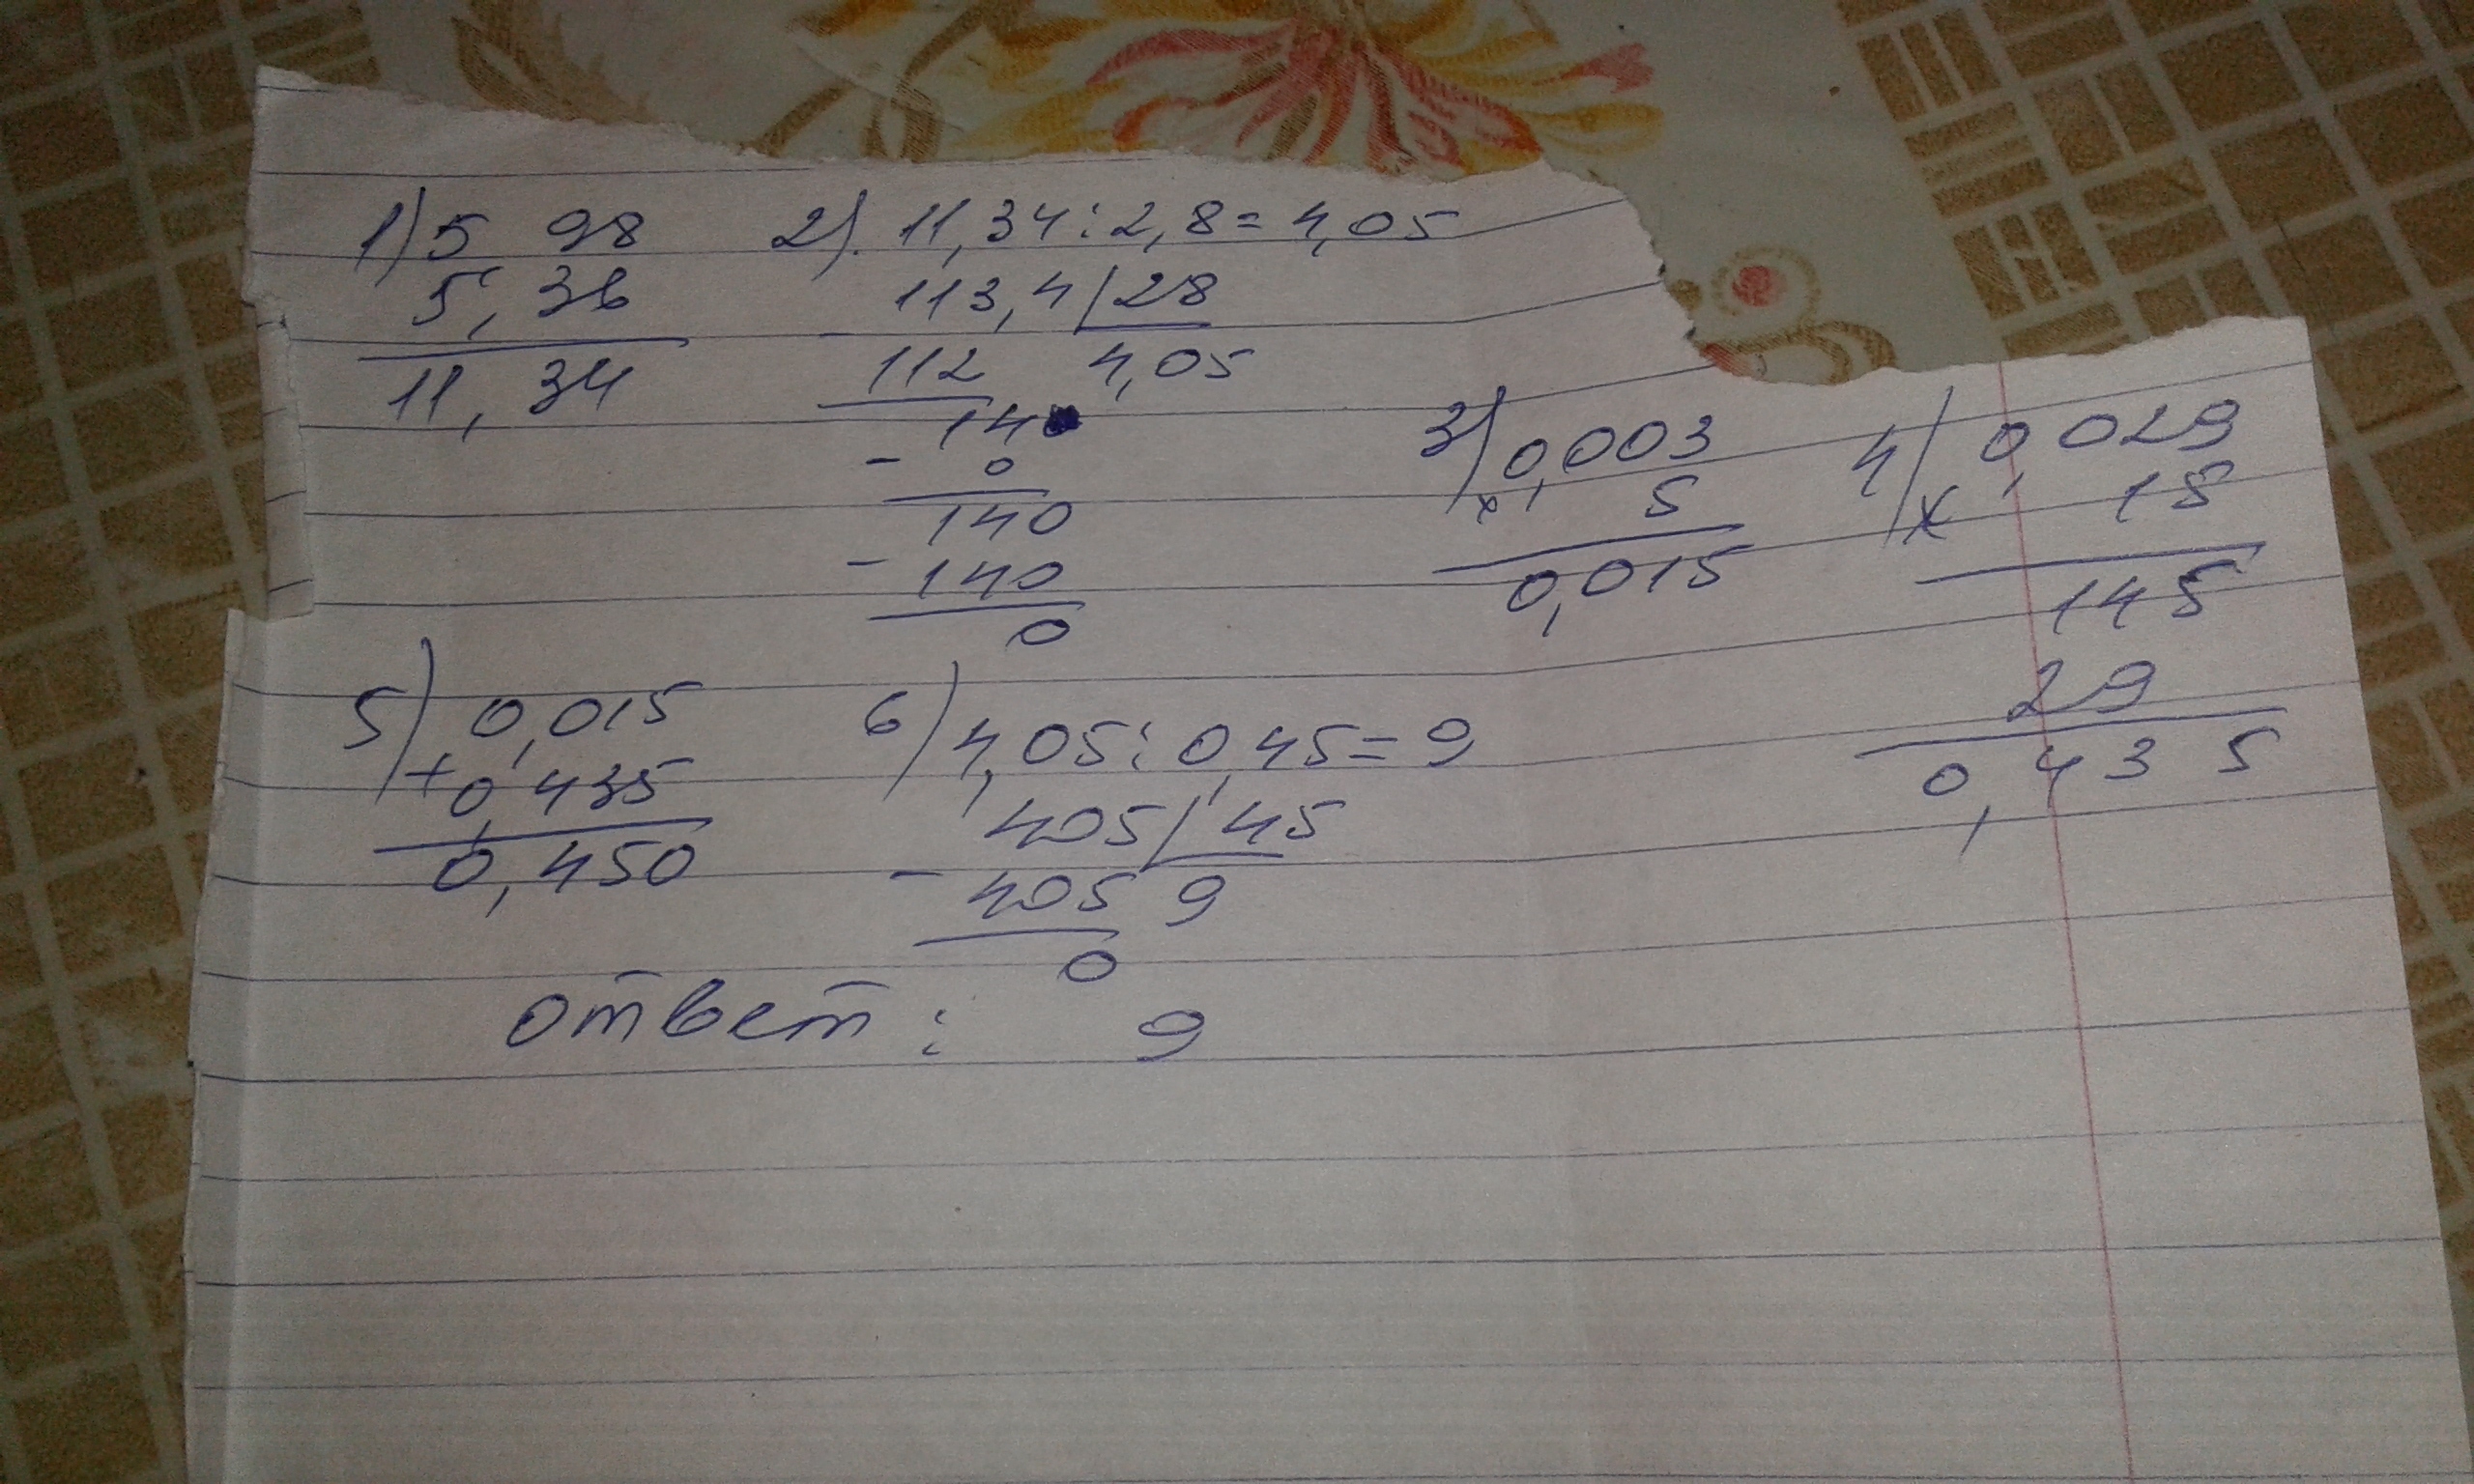 1) 5 98
5, 36
11, 34
2). 11,34:2,8=4,05
113,4 28
112 4,05
14
- 0
140
- 140
0
3) 0,003
x 5
0,015
4) 0,029
x 15
145
29
0,435
5) 0,015
+ 0,435
0,450
6) 4,05:0,45=9
405 45
- 405 9
0
ответ: 9